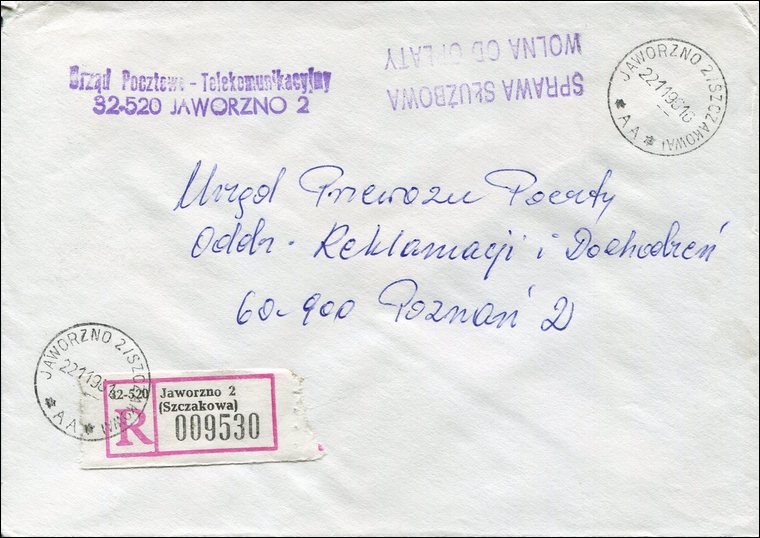 Urząd Pocztowo-Telekomunikacyjny
32-520 JAWORZNO 2
SPRAWA SŁUŻBOWA
WOLNA OD OPŁATY
JAWORZNO 2/SZCZAKOWA/
* A A *
Urząd Przewozu Poczty
Oddz. Reklamacji i Dochodzeń
60-900 Poznań 2
JAWORZNO 2/SZCZAKOWA/
* A A *
32-520 Jaworzno 2
(Szczakowa)
R 009530